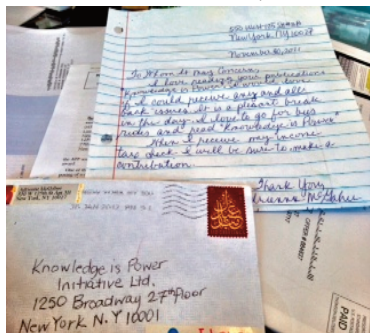 New York, NY 10027
November 30, 2011
To Whom It May Concern,
I love reading your publications
"Knowledge is Power". I would love
if I could receive any and all
back issues. It is a pleasant break
in the day. I love to go for bus
rides and read "Knowledge is Power"
When I receive my income
tax check I will be sure to make a
contribution.
Thank You,
New York, NY
Knowledge is Power
Initiative Ltd.
1250 Broadway 27th Floor
New York N.Y 10001
PAID